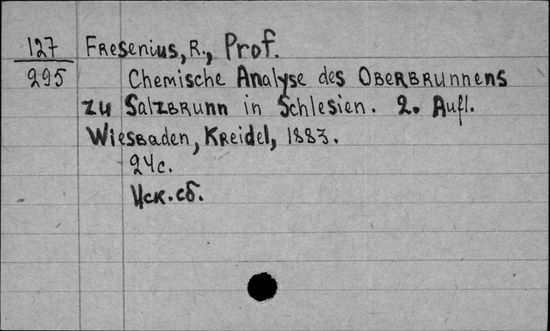 127 Fresenius, R., Prof.
295 Chemische Analyse des Oberbrunnens
zu Salzbrunn in Schlesien. 2. Aufl.
Wiesbaden, Kreidel, 1883.
24 с.
Иск. сб.